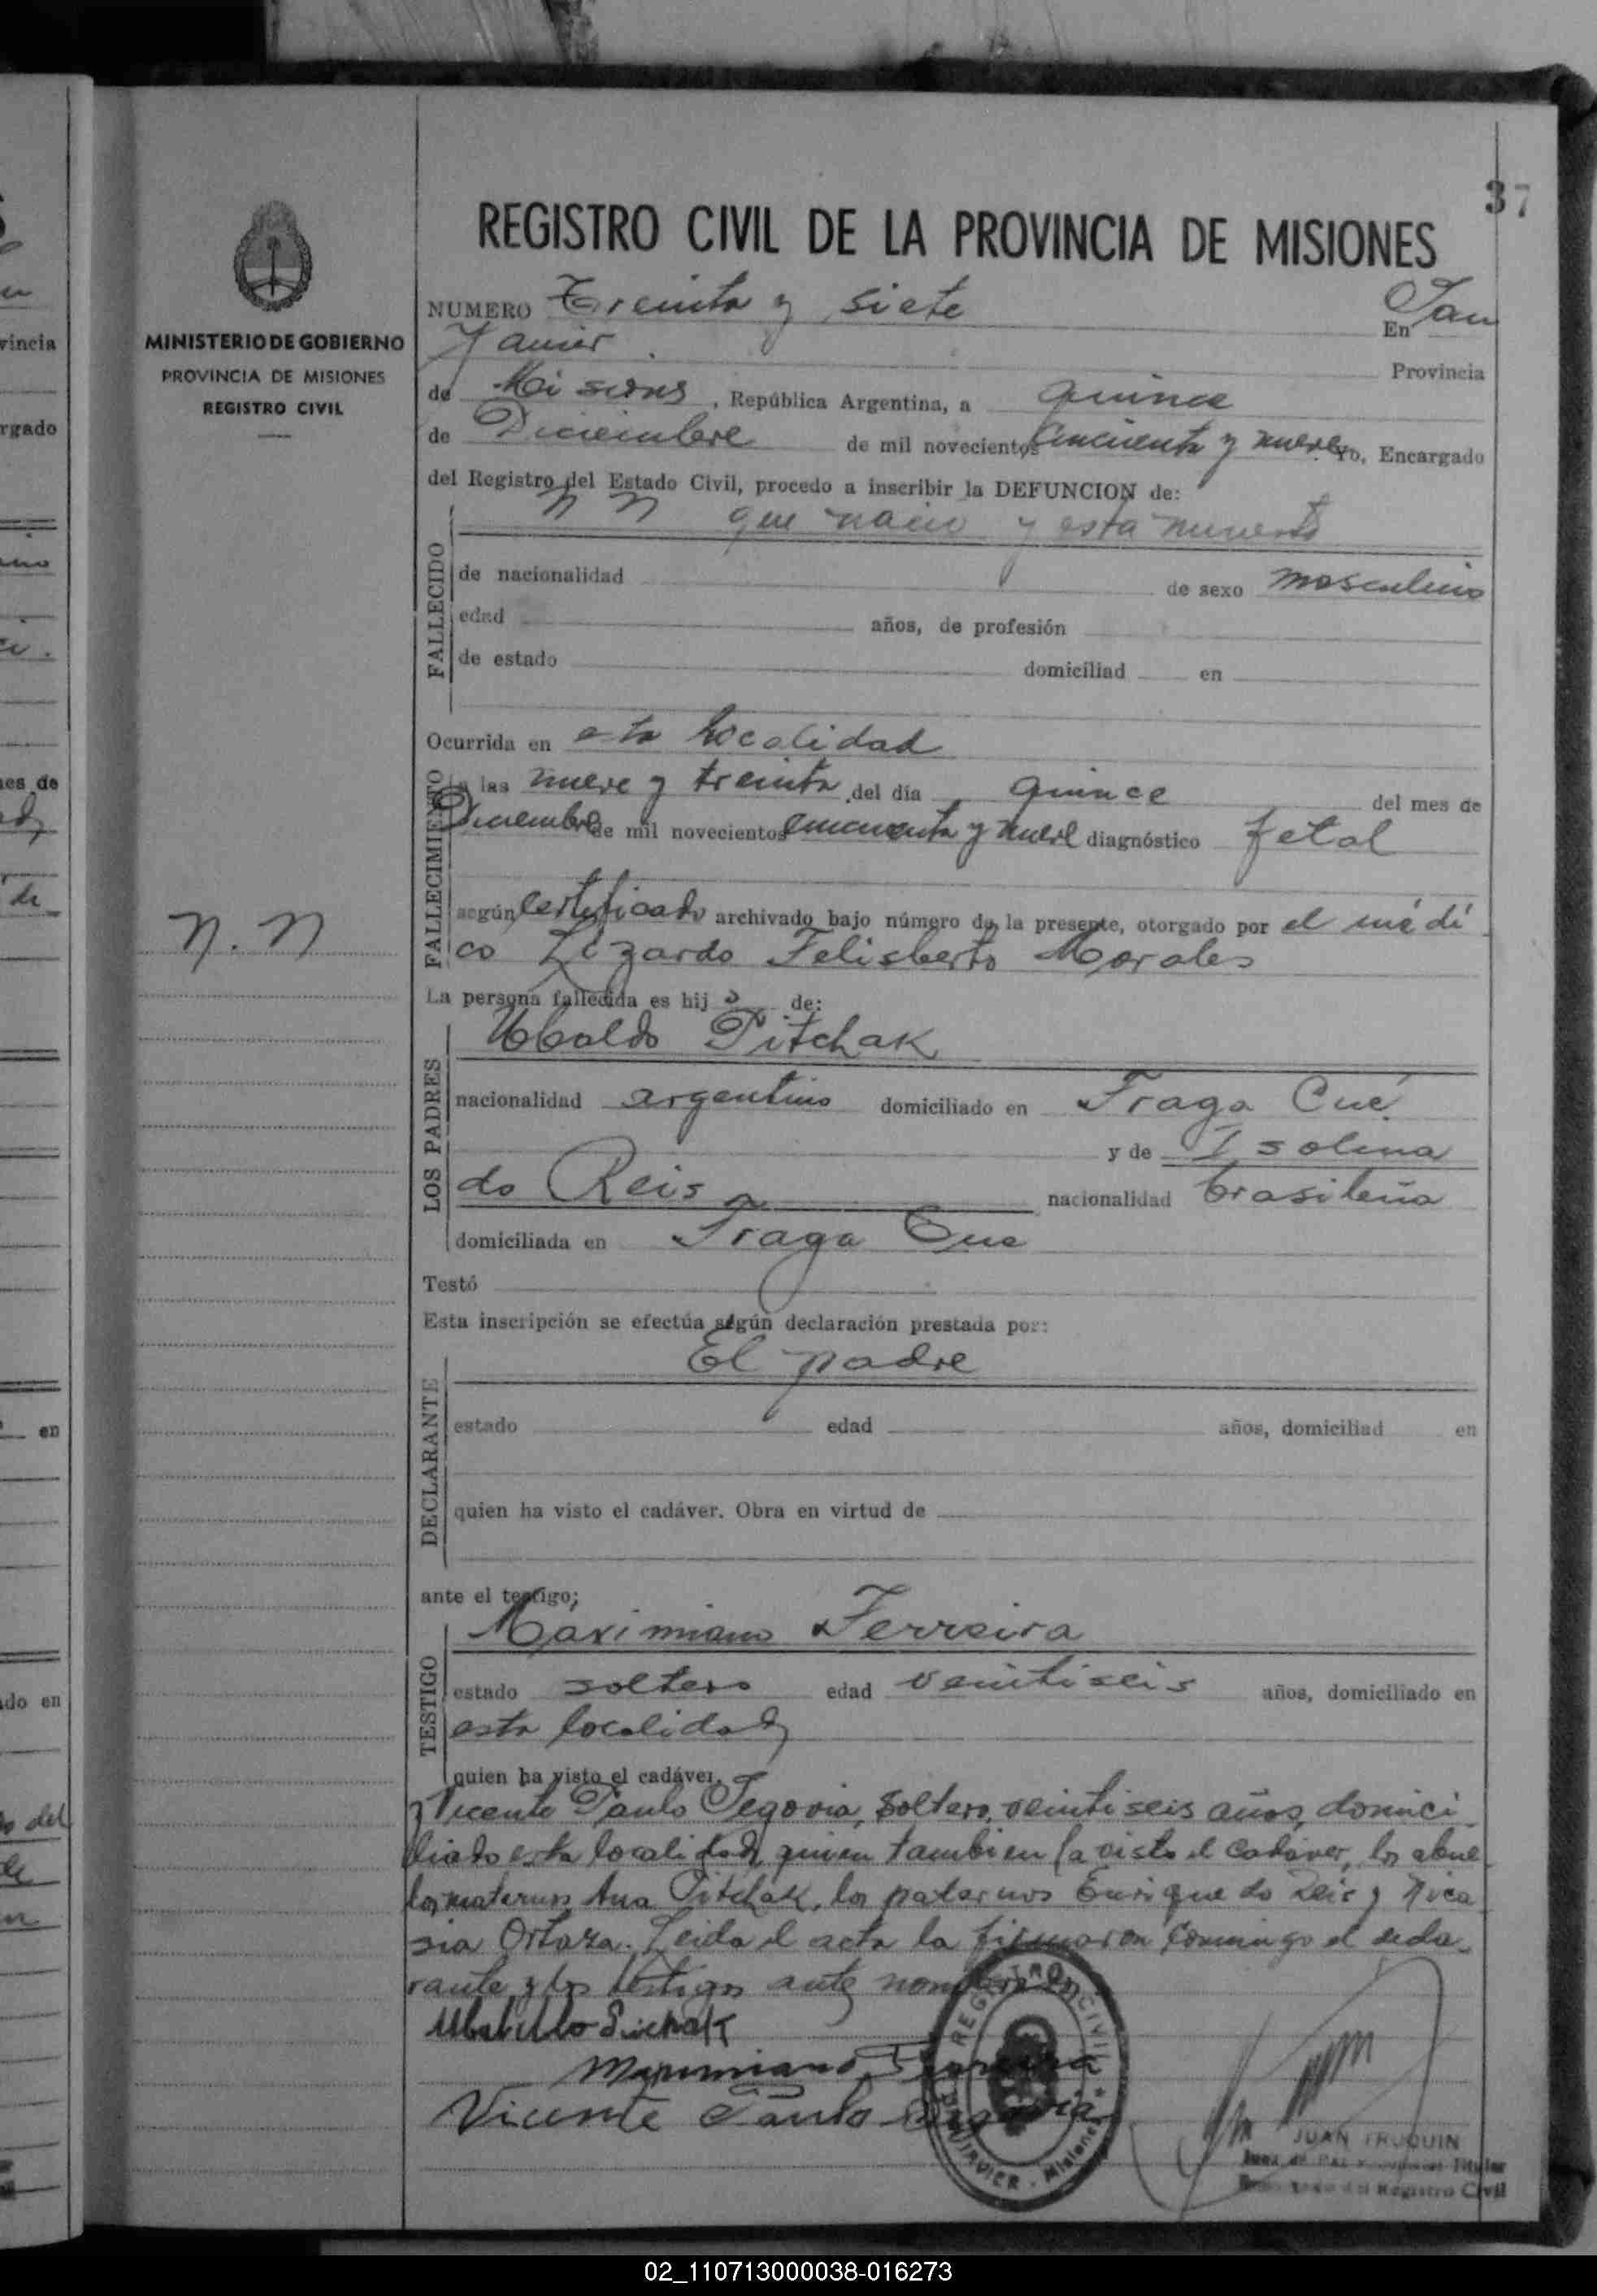 37
REGISTRO CIVIL DE LA PROVINCIA DE MISIONES
MINISTERIO DE GOBIERNO
PROVINCIA DE MISIONES
REGISTRO CIVIL
NUMERO Treinta y siete En San
Javier Provincia
de Misiones, República Argentina, a quince
de Diciembre de mil novecientos cincuenta y nueve Yo, Encargado
del Registro del Estado Civil, procedo a inscribir la DEFUNCION de:
N N que nacio y esta muerto
FALLECIDO
de nacionalidad de sexo masculino
edad años, de profesión
de estado domiciliad en
Ocurrida en esta localidad
FALLECIMIENTO
a las nueve y treinta del día quince del mes de
Diciembre de mil novecientos cincuenta y nueve diagnóstico fetal
según certificado archivado bajo número de la presente, otorgado por el médi
co Lizardo Felisberto Morales
N. N
La persona fallecida es hij o de:
LOS PADRES
Ubaldo Pitchak
nacionalidad argentino domiciliado en Fraga Cué
y de Isolina
do Reis nacionalidad brasileña
domiciliada en Fraga Cue
Testó
Esta inscripción se efectúa según declaración prestada por:
El padre
DECLARANTE
estado edad años, domiciliad en
quien ha visto el cadáver. Obra en virtud de
ante el testigo;
TESTIGO
Maximiano Ferreira
estado soltero edad veintiseis años, domiciliado en
esta localidad
quien ha visto el cadáver,
y Vicente Paulo Segovia, soltero, veintiseis años, domici
liado esta localidad, quien tambien ha visto el cadaver, los abue
los maternos Ana Pitchak, los paternos Enrique do Reis y Nica
sia Ortaza. Leida el acta la firmaron conmigo el decla
rante y los testigos ante nombrados
Maximiano Ferreira
Vicente Paulo Segovia
REGISTRO CIVIL
JAVIER - Misiones
JUAN TRUQUIN
Juez de Paz Titular
del Registro Civil
02_110713000038-016273